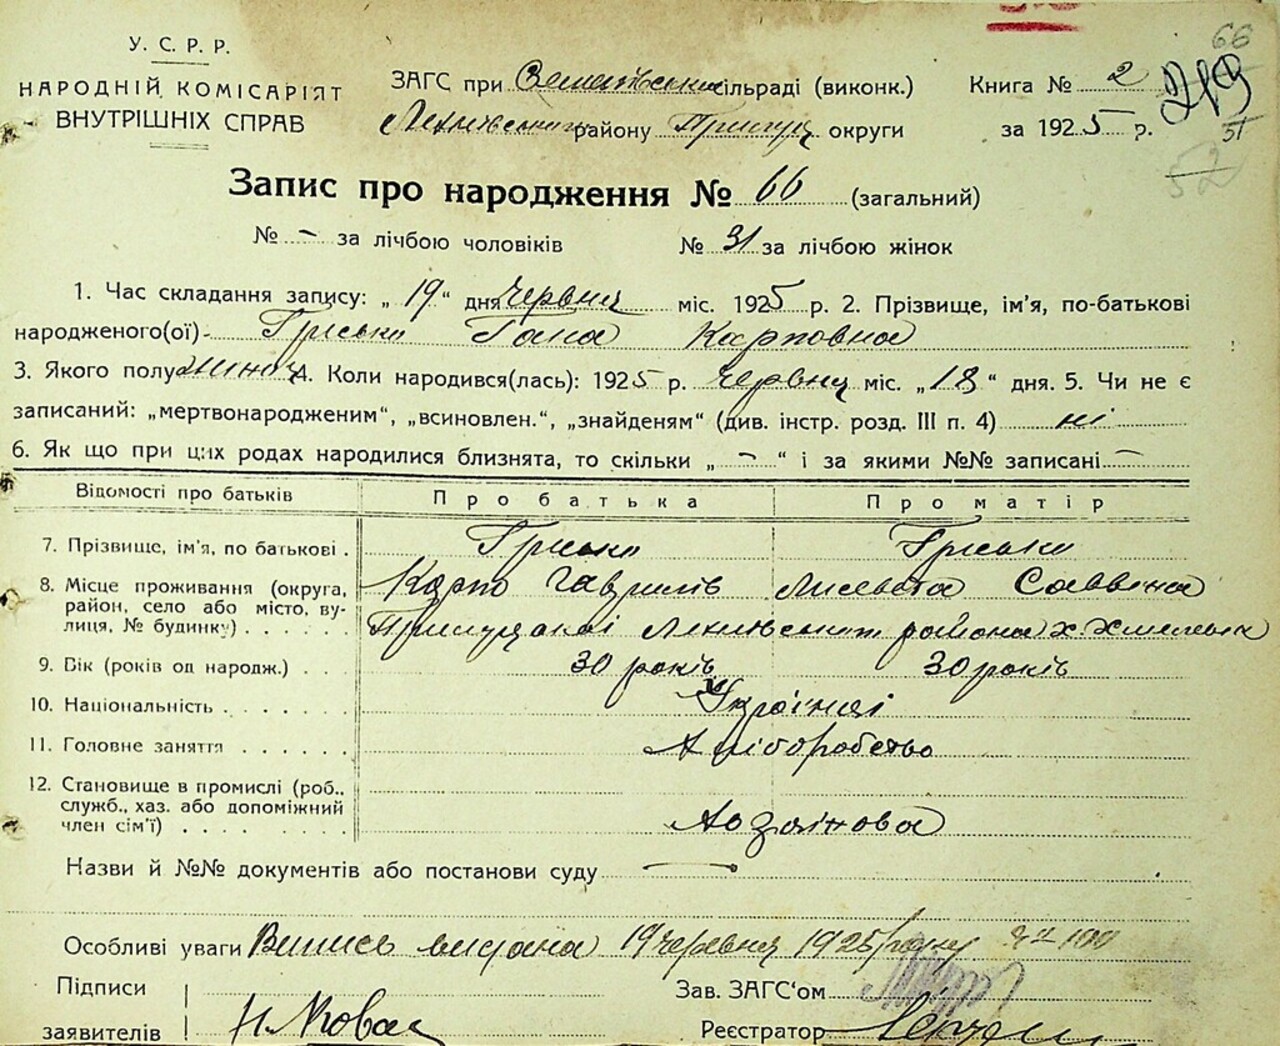 66
У. С. Р. Р.
НАРОДНІЙ КОМІСАРІЯТ
ВНУТРІШНІХ СПРАВ
ЗАГС при сільраді (виконк.)
району округи
Книга № 2
за 1925 р.
51
52
Запис про народження № 66 (загальний)
№ – за лічбою чоловіків № 31 за лічбою жінок
1. Час складання запису: „ 19 “ дня Червня міс. 1925 р. 2. Прізвище, ім'я, по-батькові
народженого(ої) - Грисько Гана Карповна
3. Якого полу жиноч. 4. Коли народився(лась): 1925 р. червня міс. „ 18 “ дня. 5. Чи не є
записаний: „мертвонародженим“, „всиновлен.“, „знайденям“ (див. інстр. розд. III п. 4) ні
6. Як що при цих родах народилися близнята, то скільки „ – “ і за якими №№ записані –
Відомості про батьків Про батька Про матір
7. Прізвище, ім'я, по батькові . Грисько Грисько
8. Місце проживання (округа, Карпо Гаврилів Лисавета Саввівна
район, село або місто, ву-
лиця, № будинку) . . . . . . района х.
9. Вік (років од народж.) . . . 30 років 30 років
10. Національність . . . . . . . Українці
11. Головне заняття . . . . . . Хліборобство
12. Становище в промислі (роб.,
служб., хаз. або допоміжний
член сім'ї) . . . . . . . . Хозяінова
Назви й №№ документів або постанови суду –
Особливі уваги Випись видана 19 червня 1925 року за № 100
Підписи
заявителів Н. Ковал
Зав. ЗАГС'ом
Реєстратор